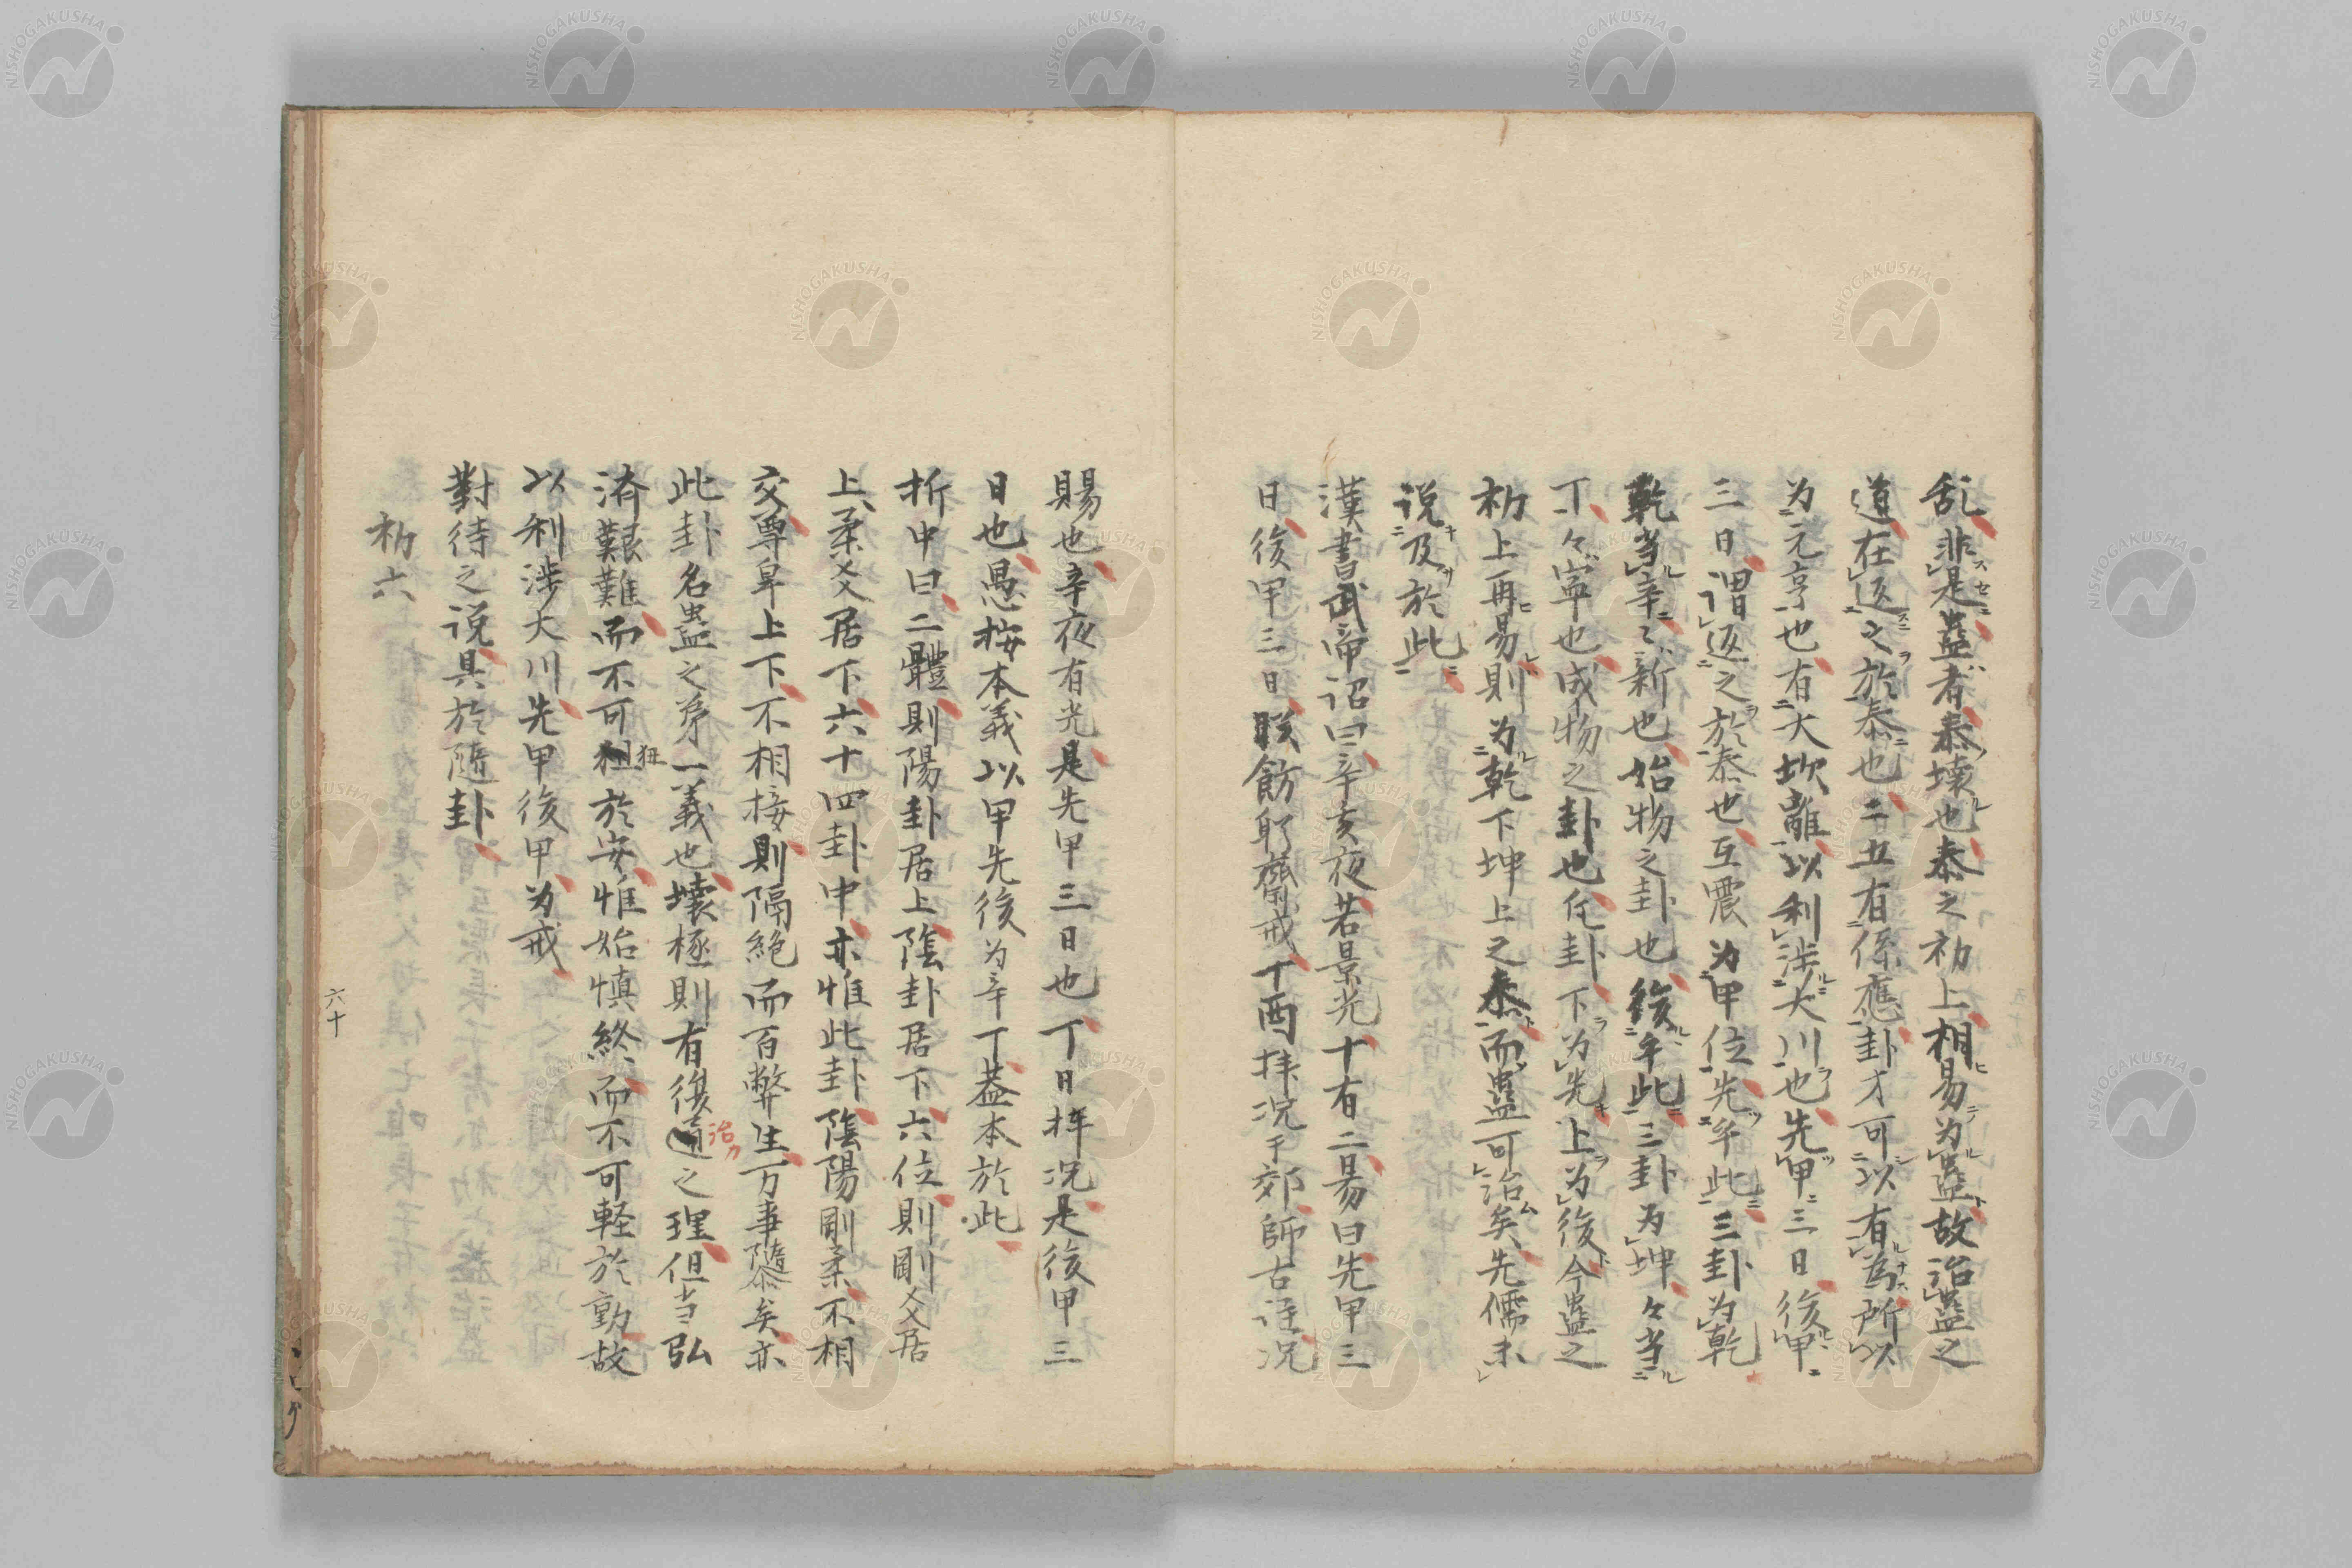 乱非是蠱者泰壊也泰之初上相易为蠱故治蠱之
道在返之於泰也二五有係應卦才可以有為所以
为元亨也有大坎離以利涉大川也先甲三日後甲
三日謂返之於泰也互震为甲位先乎此三卦为乾
乾当辛〻新也始物之卦也後乎此三卦为坤々当
丁々寧也成物之卦也凡卦下为先上为後今蠱之
初上再易則为乾下坤上之泰而蠱可治矣先儒未
说及於此
漢書武帝詔曰辛亥夜若景光十有二易曰先甲三
日後甲三日朕飭躬齋戒丁酉拝况于郊師古注况
賜也辛夜有光是先甲三日也丁日拝况是後甲三
日也愚按本義以甲先後为辛丁蓋本於此
折中曰二體則陽卦居上陰卦居下六位則剛爻居
上柔爻居下六十四卦中亦惟此卦陰陽剛柔不相
交尊卑上下不相接則隔絶而百弊生万事隳矣亦
此卦名蠱之第一義也壊極則有復道之理但当弘
治カ
済艱難而不可狃於安惟始慎終而不可軽於動故
狃
以利涉大川先甲後甲为戒
對待之说具於隨卦
初六
六十
NISHOGAKUSHA